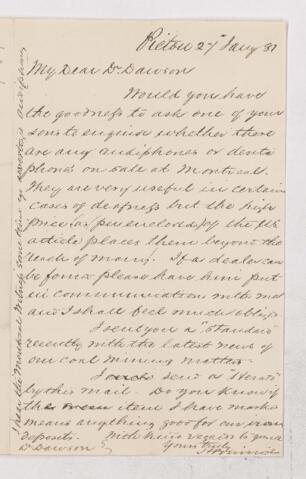 Pictou 27 Jany 81
My Dear Dr Dawson
Would you have
the goodness to ask one of your
sons to enquire whether there
are any audiphones or denta
phones on sale at Montreal.
They are very useful in certain
cases of deafness but the high
price as per enclosed of the US
article places them beyond the
reach of many. If a dealer can
be found please have him put
in communication with me
and I shall feel much obliged
I sent you a "Standard"
recently with the latest news of
our coal mining matters.
I send a "Herald"
by this mail. Do you know if
the item I have marked
means anything good for our iron
deposits. With kind regards to you all
Dr Dawson Yours truly
I saw the Montreal Witness some time ago advertise audiphones